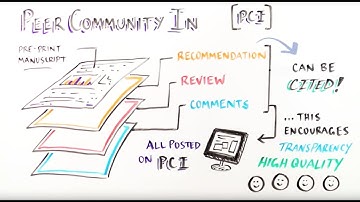 PEER COMMUNITY IN [PCI]
PRE-PRINT
MANUSCRIPT
RECOMMENDATION
REVIEW
COMMENTS
ALL POSTED
ON PCI
CAN BE
CITED!
...THIS
ENCOURAGES
TRANSPARENCY
HIGH QUALITY